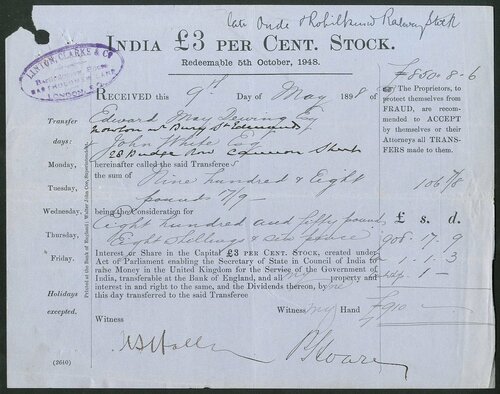 late Oude & Rohilkund Railway Stock
INDIA £3 PER CENT. STOCK.
Redeemable 5th October, 1948.
LINTON, CLARKE & CO
BARTHOLOMEW LANE
LONDON, E.C.
£850.8.6
RECEIVED this 9th Day of May 1898
The Proprietors, to
protect themselves from
FRAUD, are recommended to ACCEPT
by themselves or their
Attorneys all TRANSFERS made to them.
Transfer
days:
Monday,
Tuesday,
Wednesday,
Thursday,
Friday.
Holidays
excepted.
Edward May Dewing Esq
Bury St Edmunds
John White Esq
28 Budge Row Cannon Street
hereinafter called the said Transferee
the sum of Nine hundred & Eight
pounds 17/9
106 7/8
being the Consideration for
Eight hundred and fifty pounds
Eight Shillings & six pence
£ s. d.
908 17 9
1 1 3
1 -
£910
Interest or Share in the Capital £3 PER CENT. STOCK, created under
Act of Parliament enabling the Secretary of State in Council of India to
raise Money in the United Kingdom for the Service of the Government of
India, transferable at the Bank of England, and all my property and
interest in and right to the same, and the Dividends thereon, by me
this day transferred to the said Transferee
Witness my Hand
Witness
(2640)